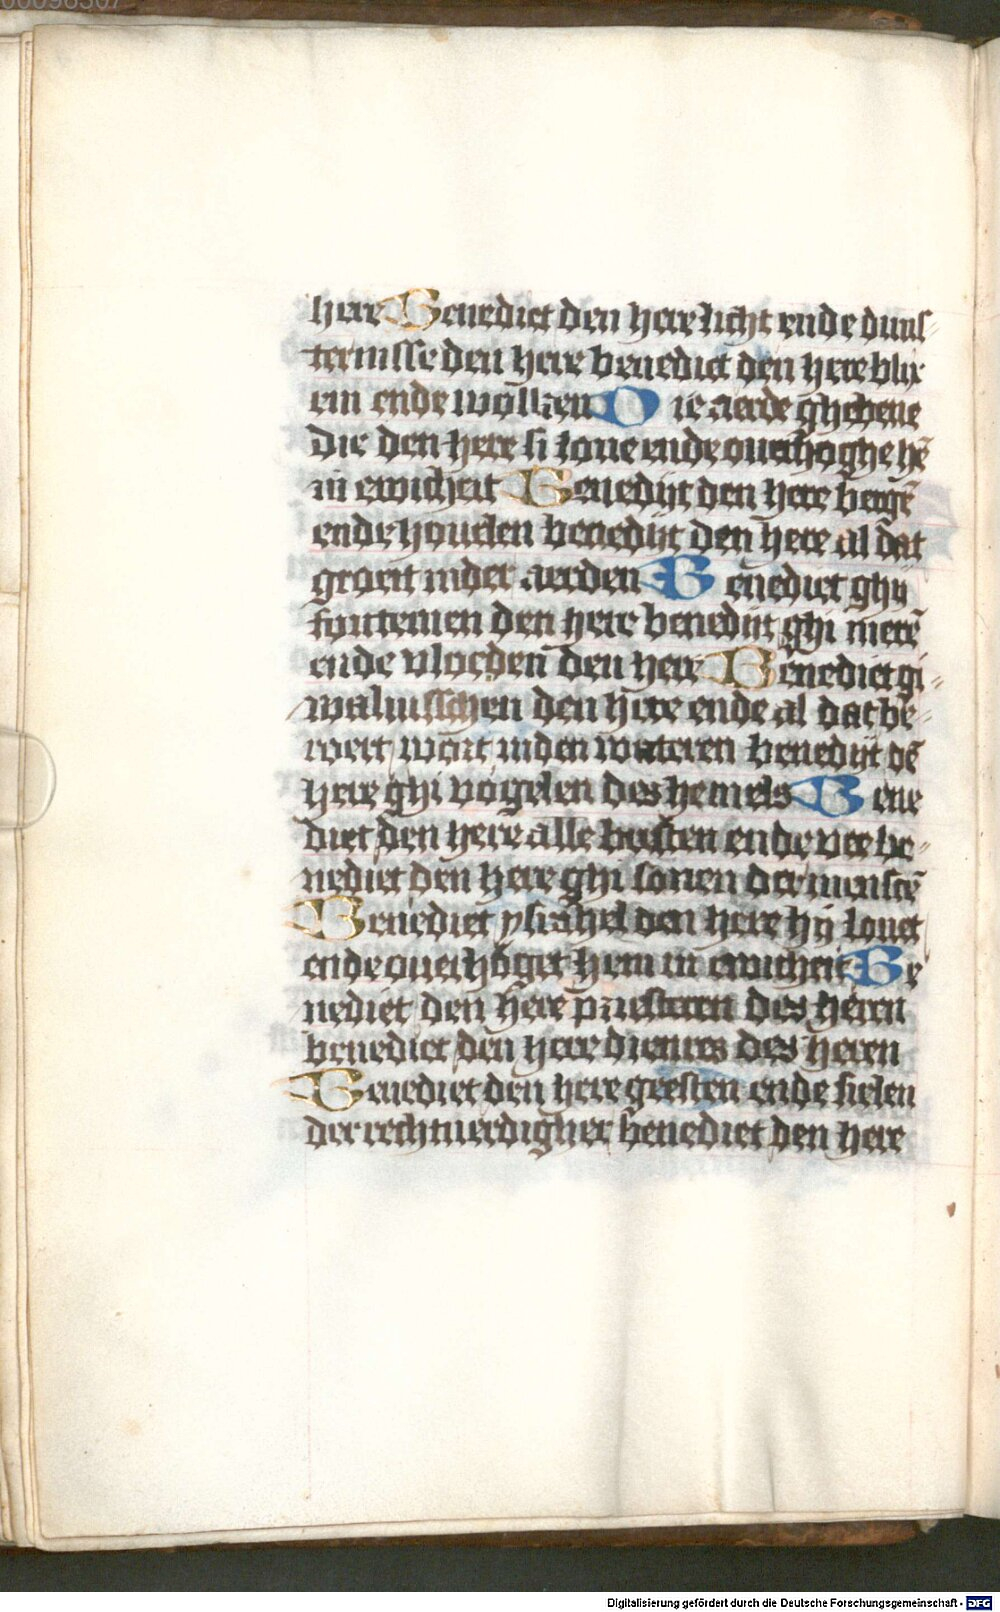 here Benedict den here licht ende duns⸗
ternisse den here benedict den here blix
em ende wolken Die aerde ghebene
die den here si loue ende ouerhoghe hē
in ewicheit Benedijt den here bergē
ende houelen benedijt den here al dat
groeit inder aerden Benediet ghij
fonteinen den here benedijt ghi merē
ende vloeden den here Benediet gi⸗
walvisschen den here ende al dat be⸗
roert wort inden wateren benedijt dē
here ghi vogelen des hemels Bene
diet den here alle beesten ende vee be⸗
nediet den here ghi sonen der menscē
Benediet ysrahel den here hij louet
ende ouerhoget hem in ewicheit Be
nediet den here priesteren des heren
benediet den here dienres des heren
Benediet den here geesten ende sielen
der rechtuerdigher benediet den here
Digitalisierung gefördert durch die Deutsche Forschungsgemeinschaft - DFG